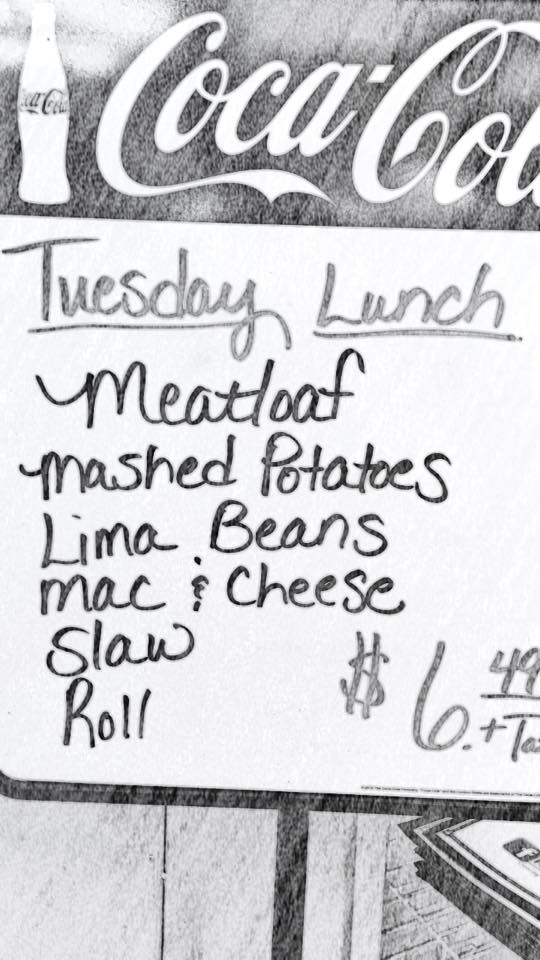 Coca-Cola
Coca-Cola
Tuesday Lunch
Meatloaf
mashed Potatoes
Lima Beans
mac & Cheese
Slaw
Roll
$6.49
+Tax